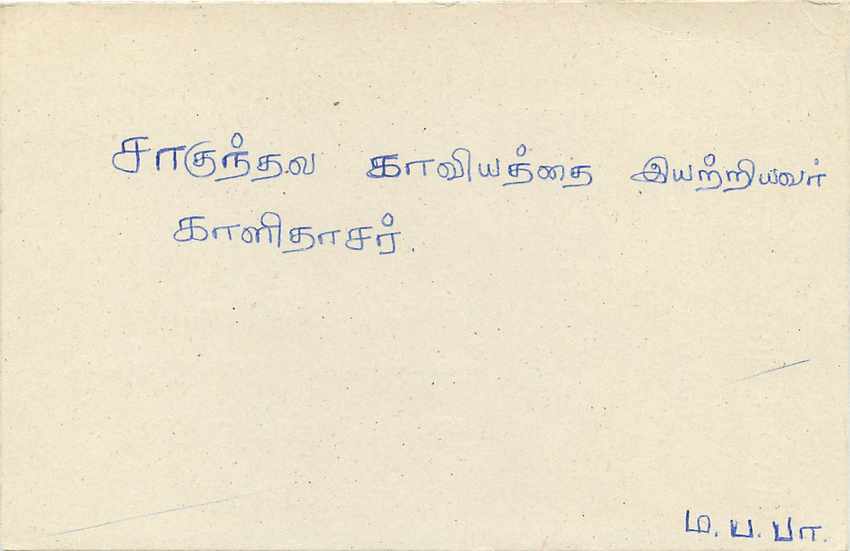 சாகுந்தல காவியத்தை இயற்றியவர்
காளிதாசர்.
ம. ப. பா.